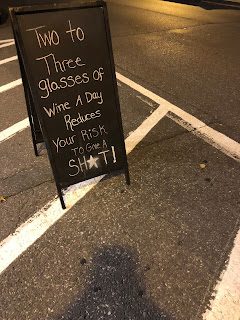 Two to
Three
glasses of
Wine A Day
Reduces
Your Risk
To Give A
SH★T!